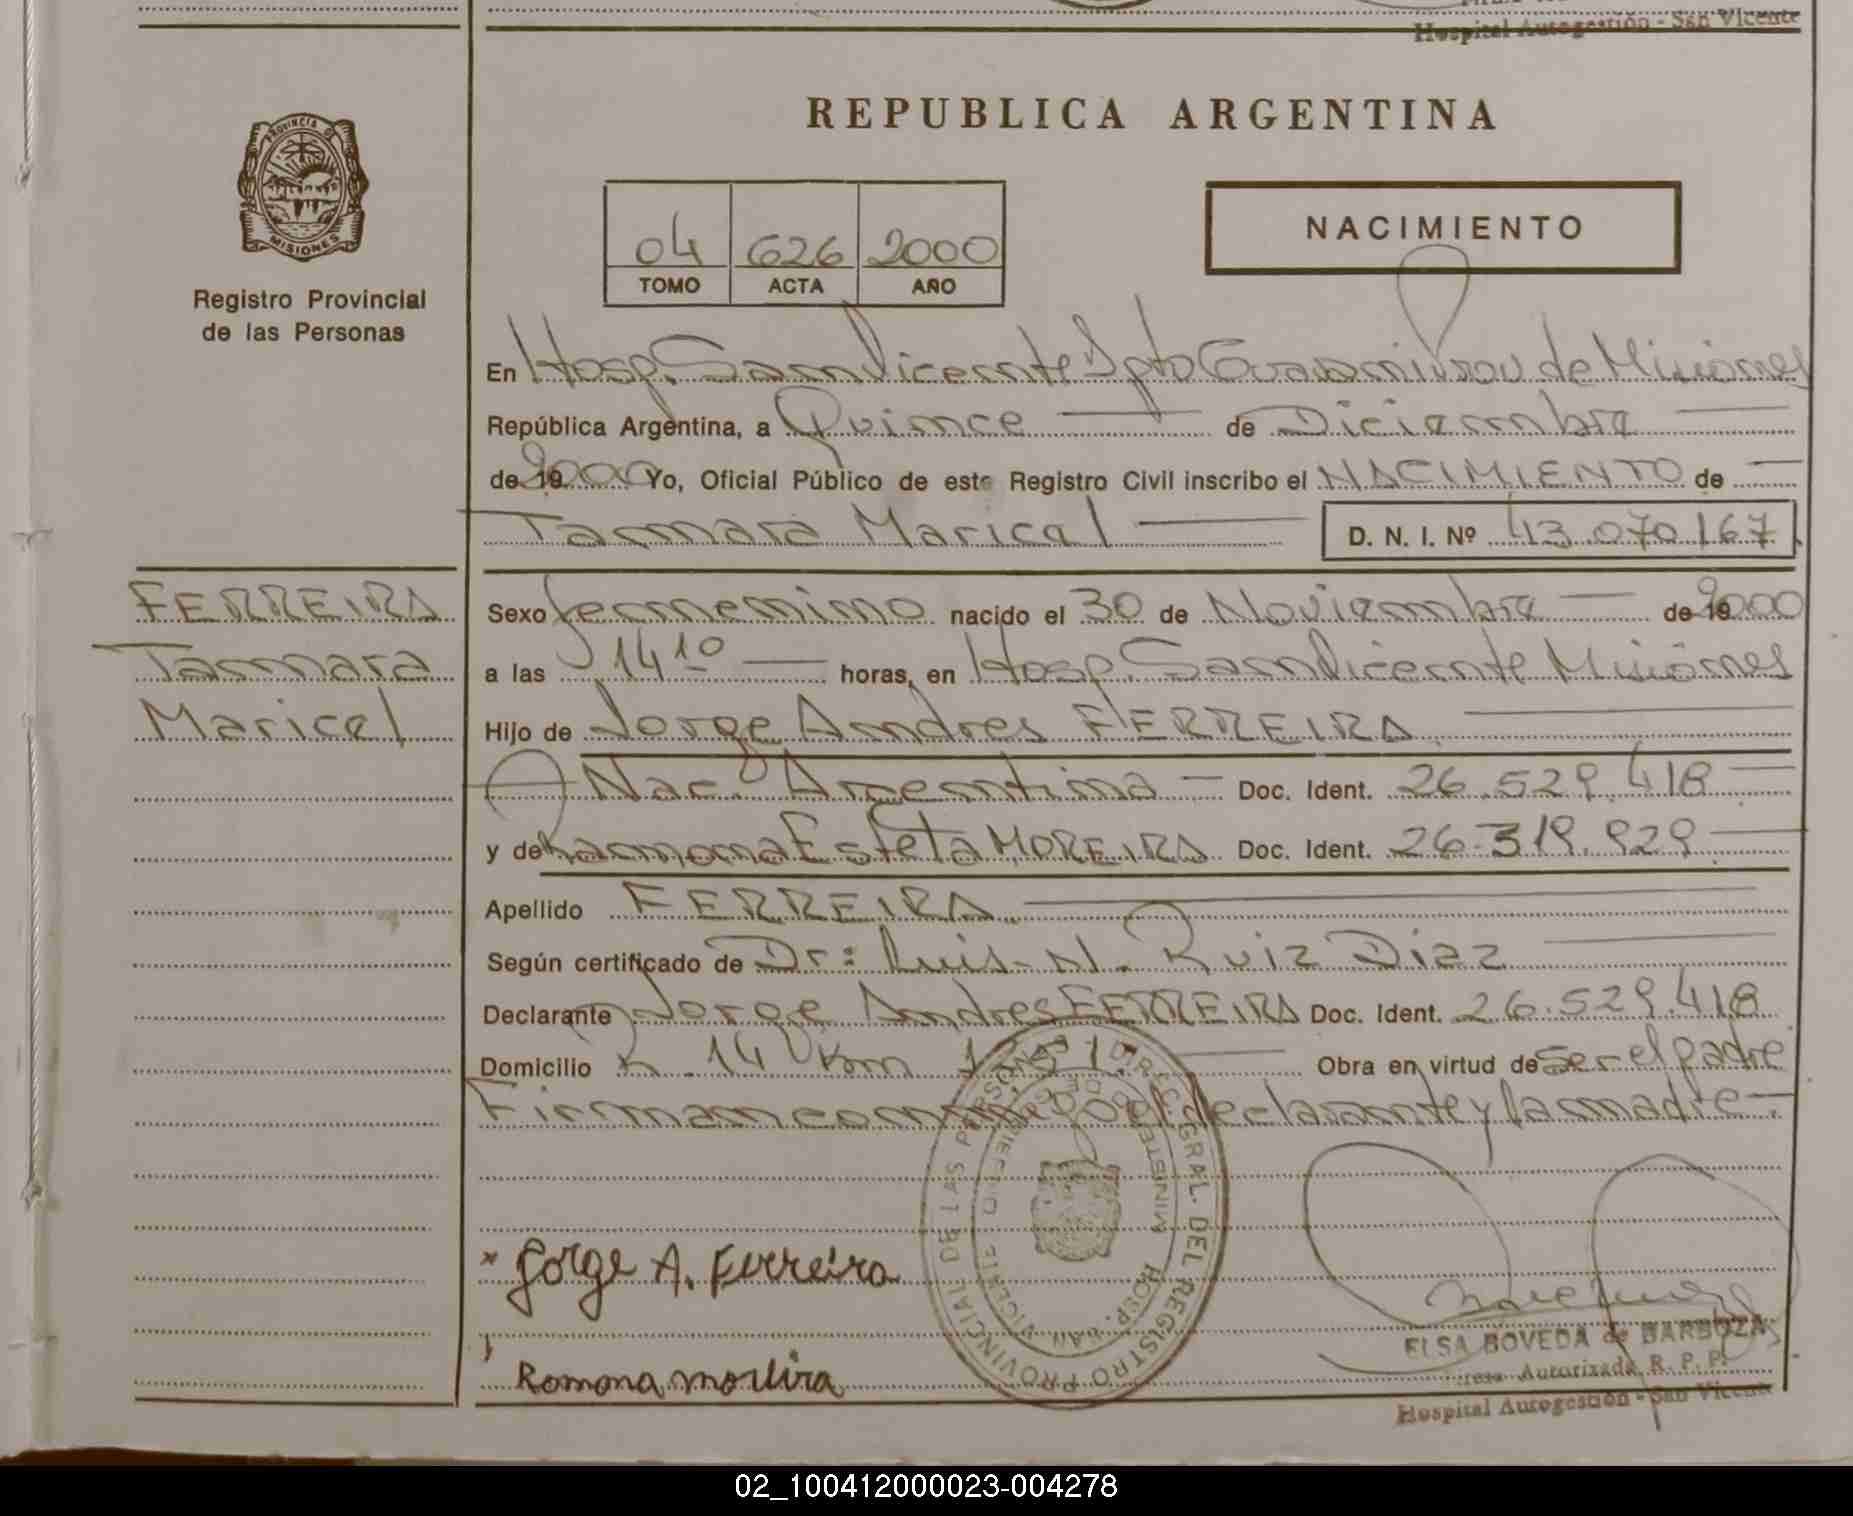 Hospital Autogestión - San Vicente
REPUBLICA ARGENTINA
PROVINCIA DE
MISIONES
Registro Provincial
de las Personas
04 626 2000
TOMO ACTA AÑO
NACIMIENTO
En Hosp. San Vicente Dpto Guaraní Prov de Misiones
República Argentina, a Quince de Diciembre
de 19 2000 Yo, Oficial Público de este Registro Civil inscribo el NACIMIENTO de
Tamara Maricel D. N. I. Nº 43.070.167
FERREIRA
Tamara
Maricel
Sexo femenino nacido el 30 de Noviembre de 19 2000
a las 14 10 horas, en Hosp. San Vicente Misiones
Hijo de Jorge Andres FERREIRA
Nac. Argentina Doc. Ident. 26.529.418
y de Ramona Estela MOREIRA Doc. Ident. 26.319.929
Apellido FERREIRA
Según certificado de Dr: Luis N. Ruiz Diaz
Declarante Jorge Andres FERREIRA Doc. Ident. 26.529.418
Domicilio R. 14 Km Obra en virtud de ser el padre
Firman conmigo el declarante y la madre
DIREC. GRAL. DEL REGISTRO PROVINCIAL DE LAS PERSONAS
HOSP. SAN VICENTE
* Jorge A. Ferreira
Romona moreira
ELSA BOVEDA de BARBOZA
Autorizada R. P. P.
Hospital Autogestión - San Vicente
02_100412000023-004278